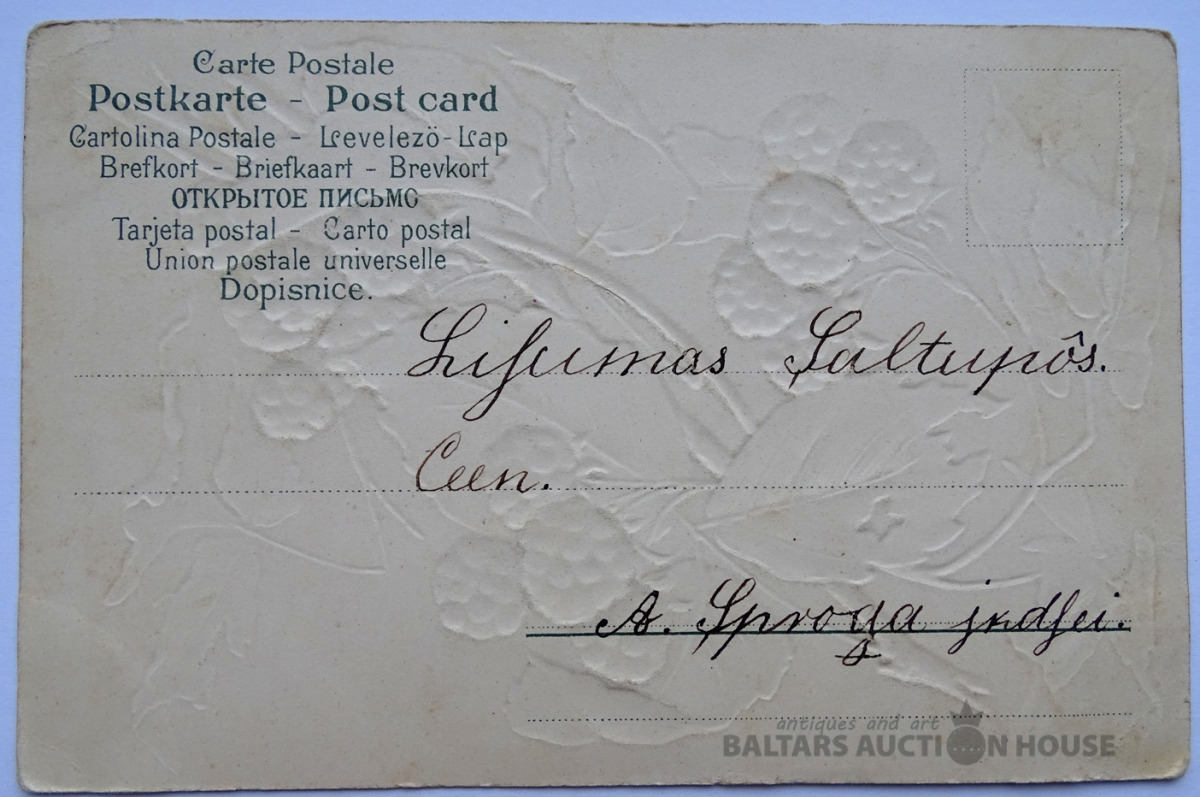 Carte Postale
Postkarte - Post card
Cartolina Postale - Levelezö-Lap
Brefkort - Briefkaart - Brevkort
ОТКРЫТОЕ ПИСЬМО
Tarjeta postal - Carto postal
Union postale universelle
Dopisnice.
Saltupôs.
Ceen.
A. Sproga jkdsei.
antiques and art
BALTARS AUCTION HOUSE